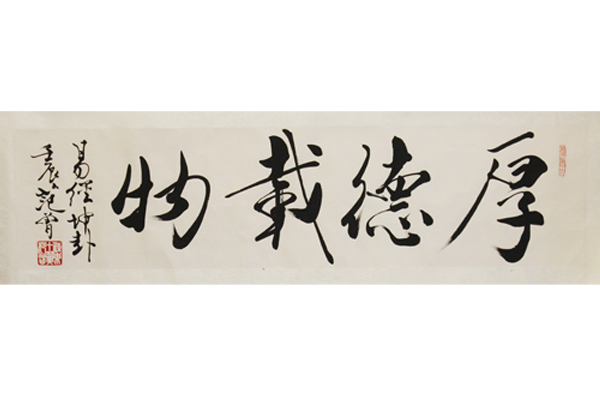 厚德載物
易經坤卦
壬辰范曾